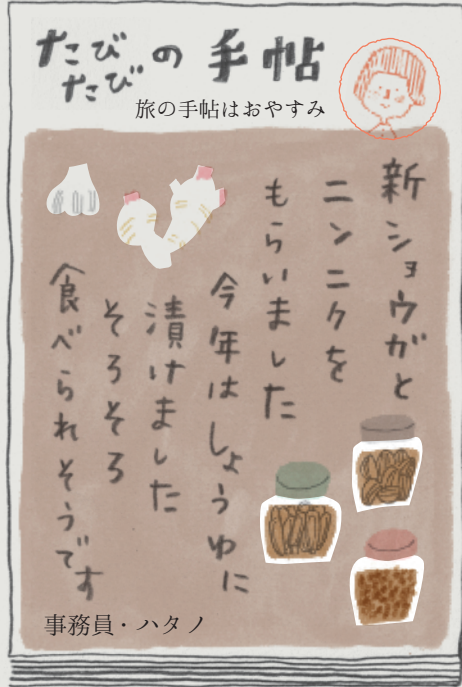 たびたびの手帖
旅の手帖はおやすみ
新ショウガと
ニンニクを
もらいました
今年はしょうゆに
漬けました
そろそろ
食べられそうです
事務員・ハタノ